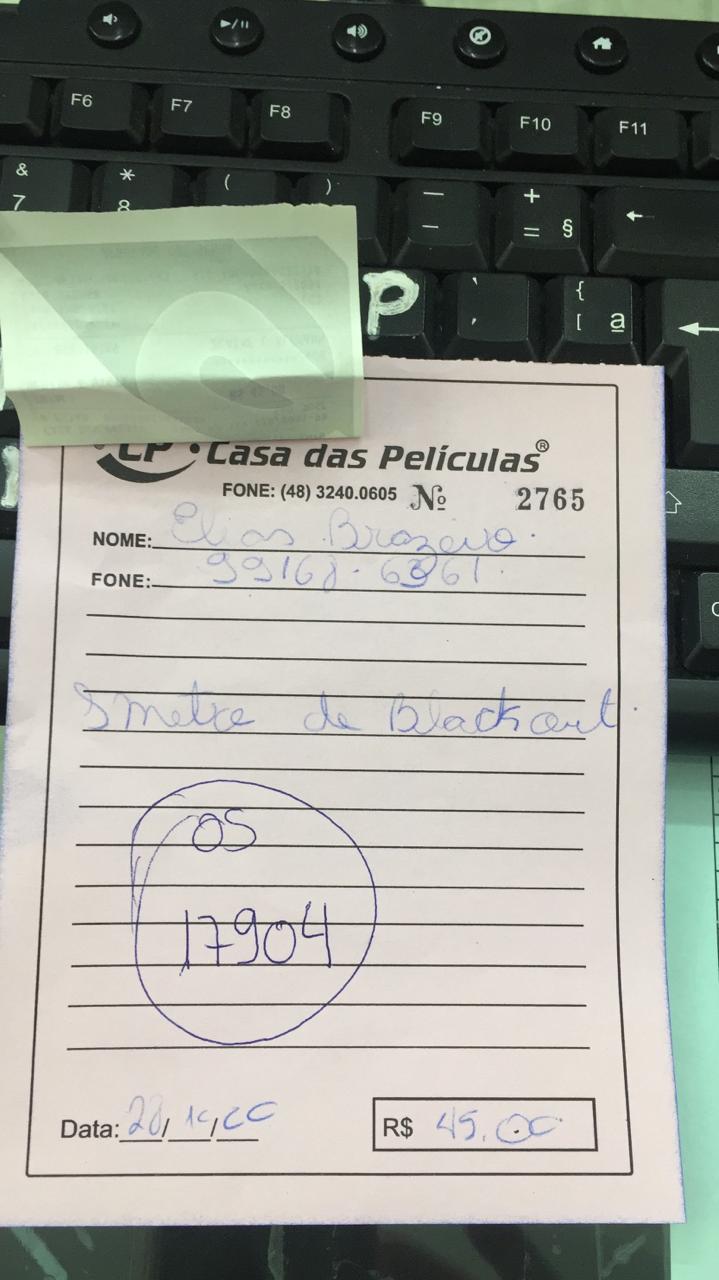 F6 F7 F8 F9 F10 F11
& * ( ) — +
7 8 – = § ←
P ` { 
, [ ª ←
CP Casa das Películas®
FONE: (48) 3240.0605 Nº 2765
NOME: Elias
FONE: 99168-6361
metro de Blackout
OS
17904
Data: 28/
R$ 45,00